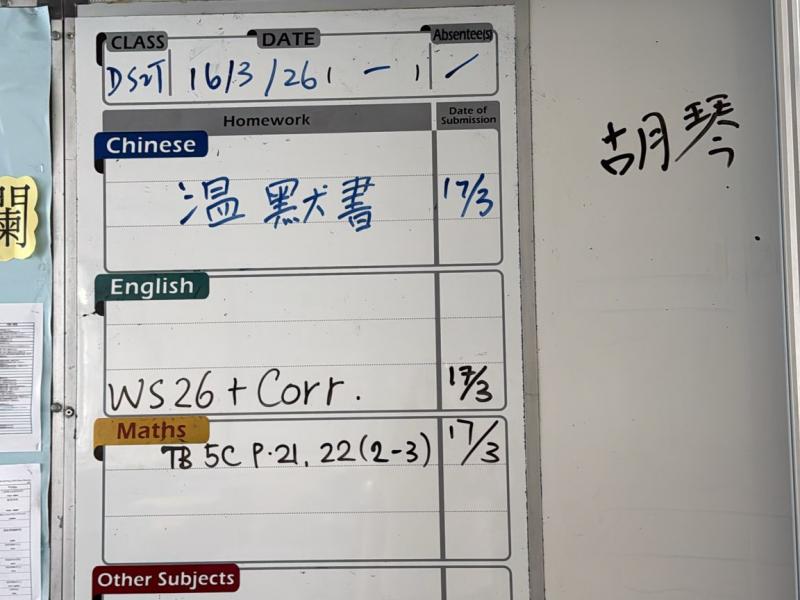 CLASS DATE Absentee(s)
DS2T 16/3/26 (一) /
Homework Date of Submission
Chinese
溫默書 17/3
English
WS26 + Corr. 17/3
Maths
TB 5C P.21, 22(2-3) 17/3
Other Subjects
胡琴
闌